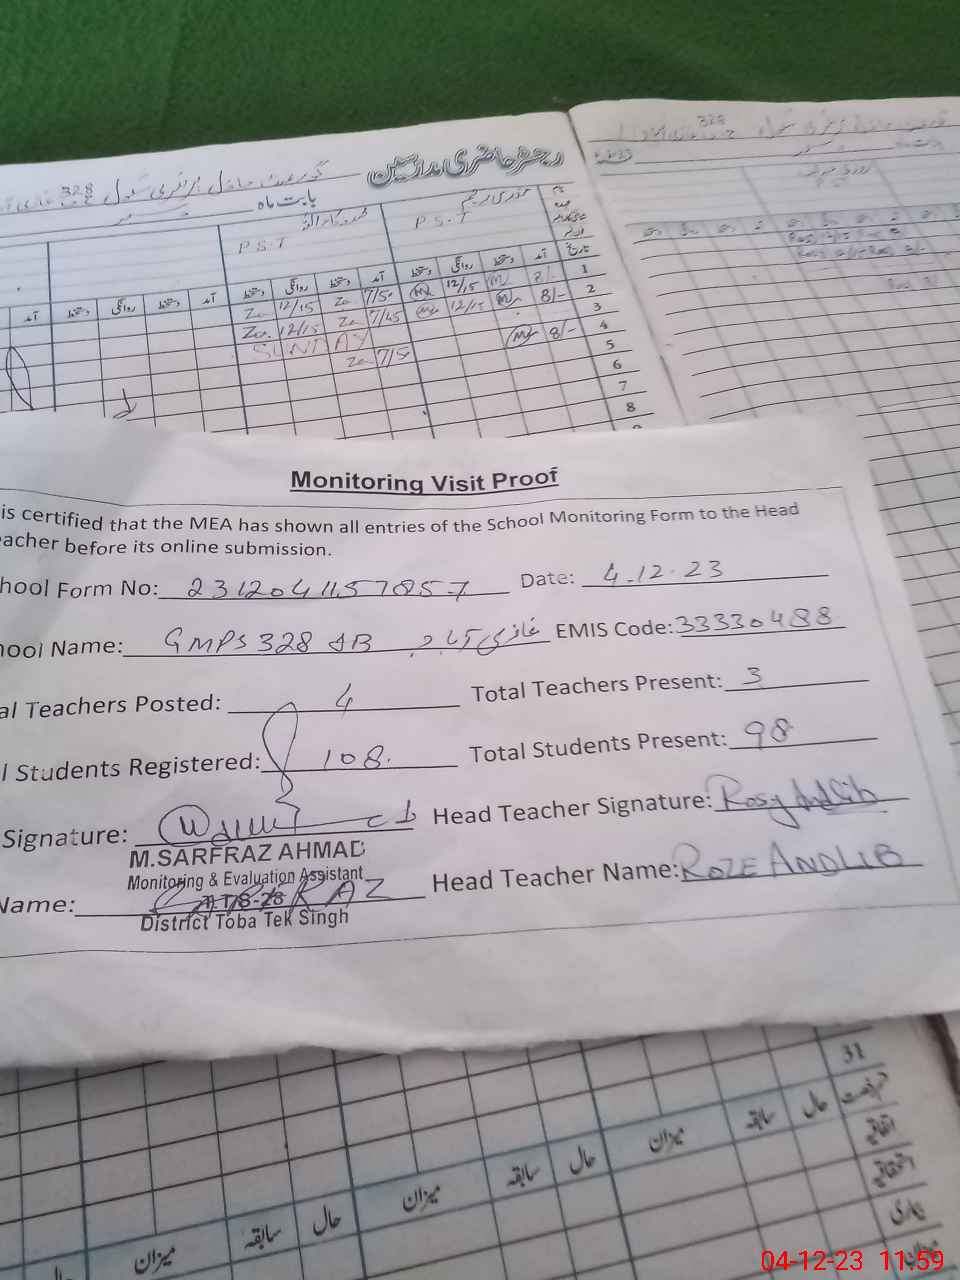 328
رجسٹر حاضری مدرسین
328
بابت ماہ
P.S.T
P.S.T
تاریخ
آمد دستخط روانگی دستخط آمد دستخط روانگی دستخط آمد دستخط روانگی دستخط آمد
1
8/- 12/15 7/50 12/15
2
8/- 12/15 7/45 12/15
3
SUNDAY
4
8/- 7/5
5
6
7
8
Monitoring Visit Proof
is certified that the MEA has shown all entries of the School Monitoring Form to the Head
acher before its online submission.
hool Form No: 2312041157857 Date: 4.12.23
hool Name: GMPS 328 JB غازی آباد EMIS Code: 33330488
al Teachers Posted: 4 Total Teachers Present: 3
l Students Registered: 108. Total Students Present: 98
Signature: Head Teacher Signature: Rosy Andlib
M.SARFRAZ AHMAD
Monitoring & Evaluation Assistant
Name: SARFRAZ Head Teacher Name: ROZE ANDLIB
T.T/S-28
District Toba Tek Singh
31
رخصت حال سابقہ میزان حال سابقہ میزان حال سابقہ میزان حال
اتفاقیہ
استحقاقیہ
بیماری
میزان
04-12-23 11:59